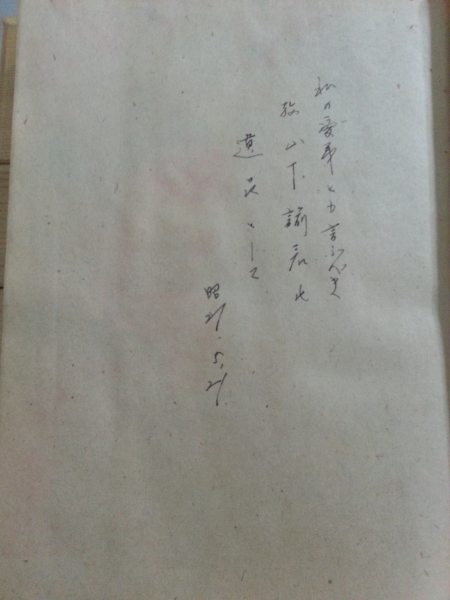 私の愛弟とも言ふべき
故山下諭君の
遺品として
昭21.5.21.